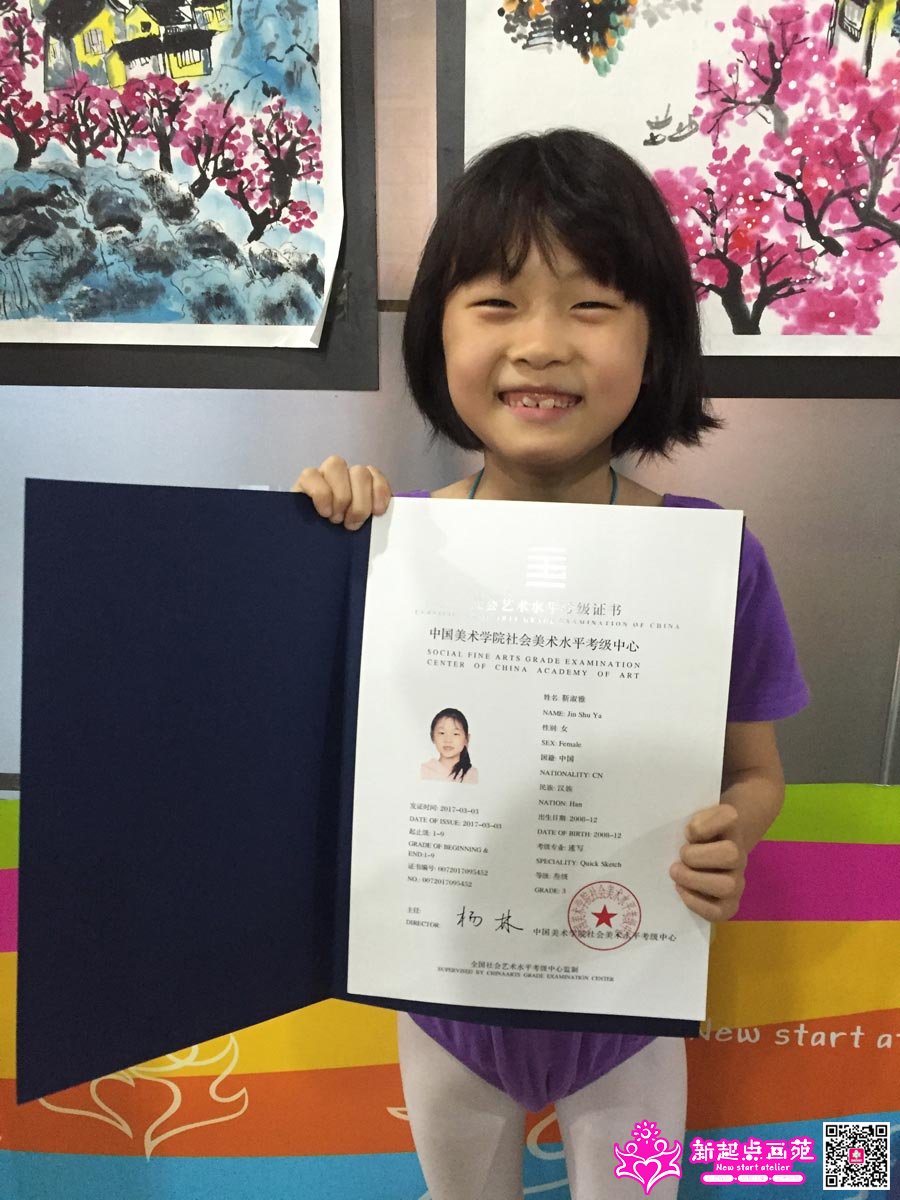 社会艺术水平考级证书
ARTS GRADE EXAMINATION OF CHINA
中国美术学院社会美术水平考级中心
SOCIAL FINE ARTS GRADE EXAMINATION
CENTER OF CHINA ACADEMY OF ART
姓名: 靳淑雅
NAME: Jin Shu Ya
性别: 女
SEX: Female
国籍: 中国
NATIONALITY: CN
民族: 汉族
NATION: Han
出生日期: 2008-12
DATE OF BIRTH: 2008-12
考级专业: 速写
SPECIALITY: Quick Sketch
等级: 叁级
GRADE: 3
发证时间: 2017-03-03
DATE OF ISSUE: 2017-03-03
起止级: 1-9
GRADE OF BEGINNING &
END:1-9
证书编号: 0072017095452
NO.: 0072017095452
主任:
DIRECTOR:
杨林
中国美术学院社会美术水平考级中心
全国社会艺术水平考级中心监制
SUPERVISED BY CHINAARTS GRADE EXAMINATION CENTER
New start at
新起点画苑
New start atelier